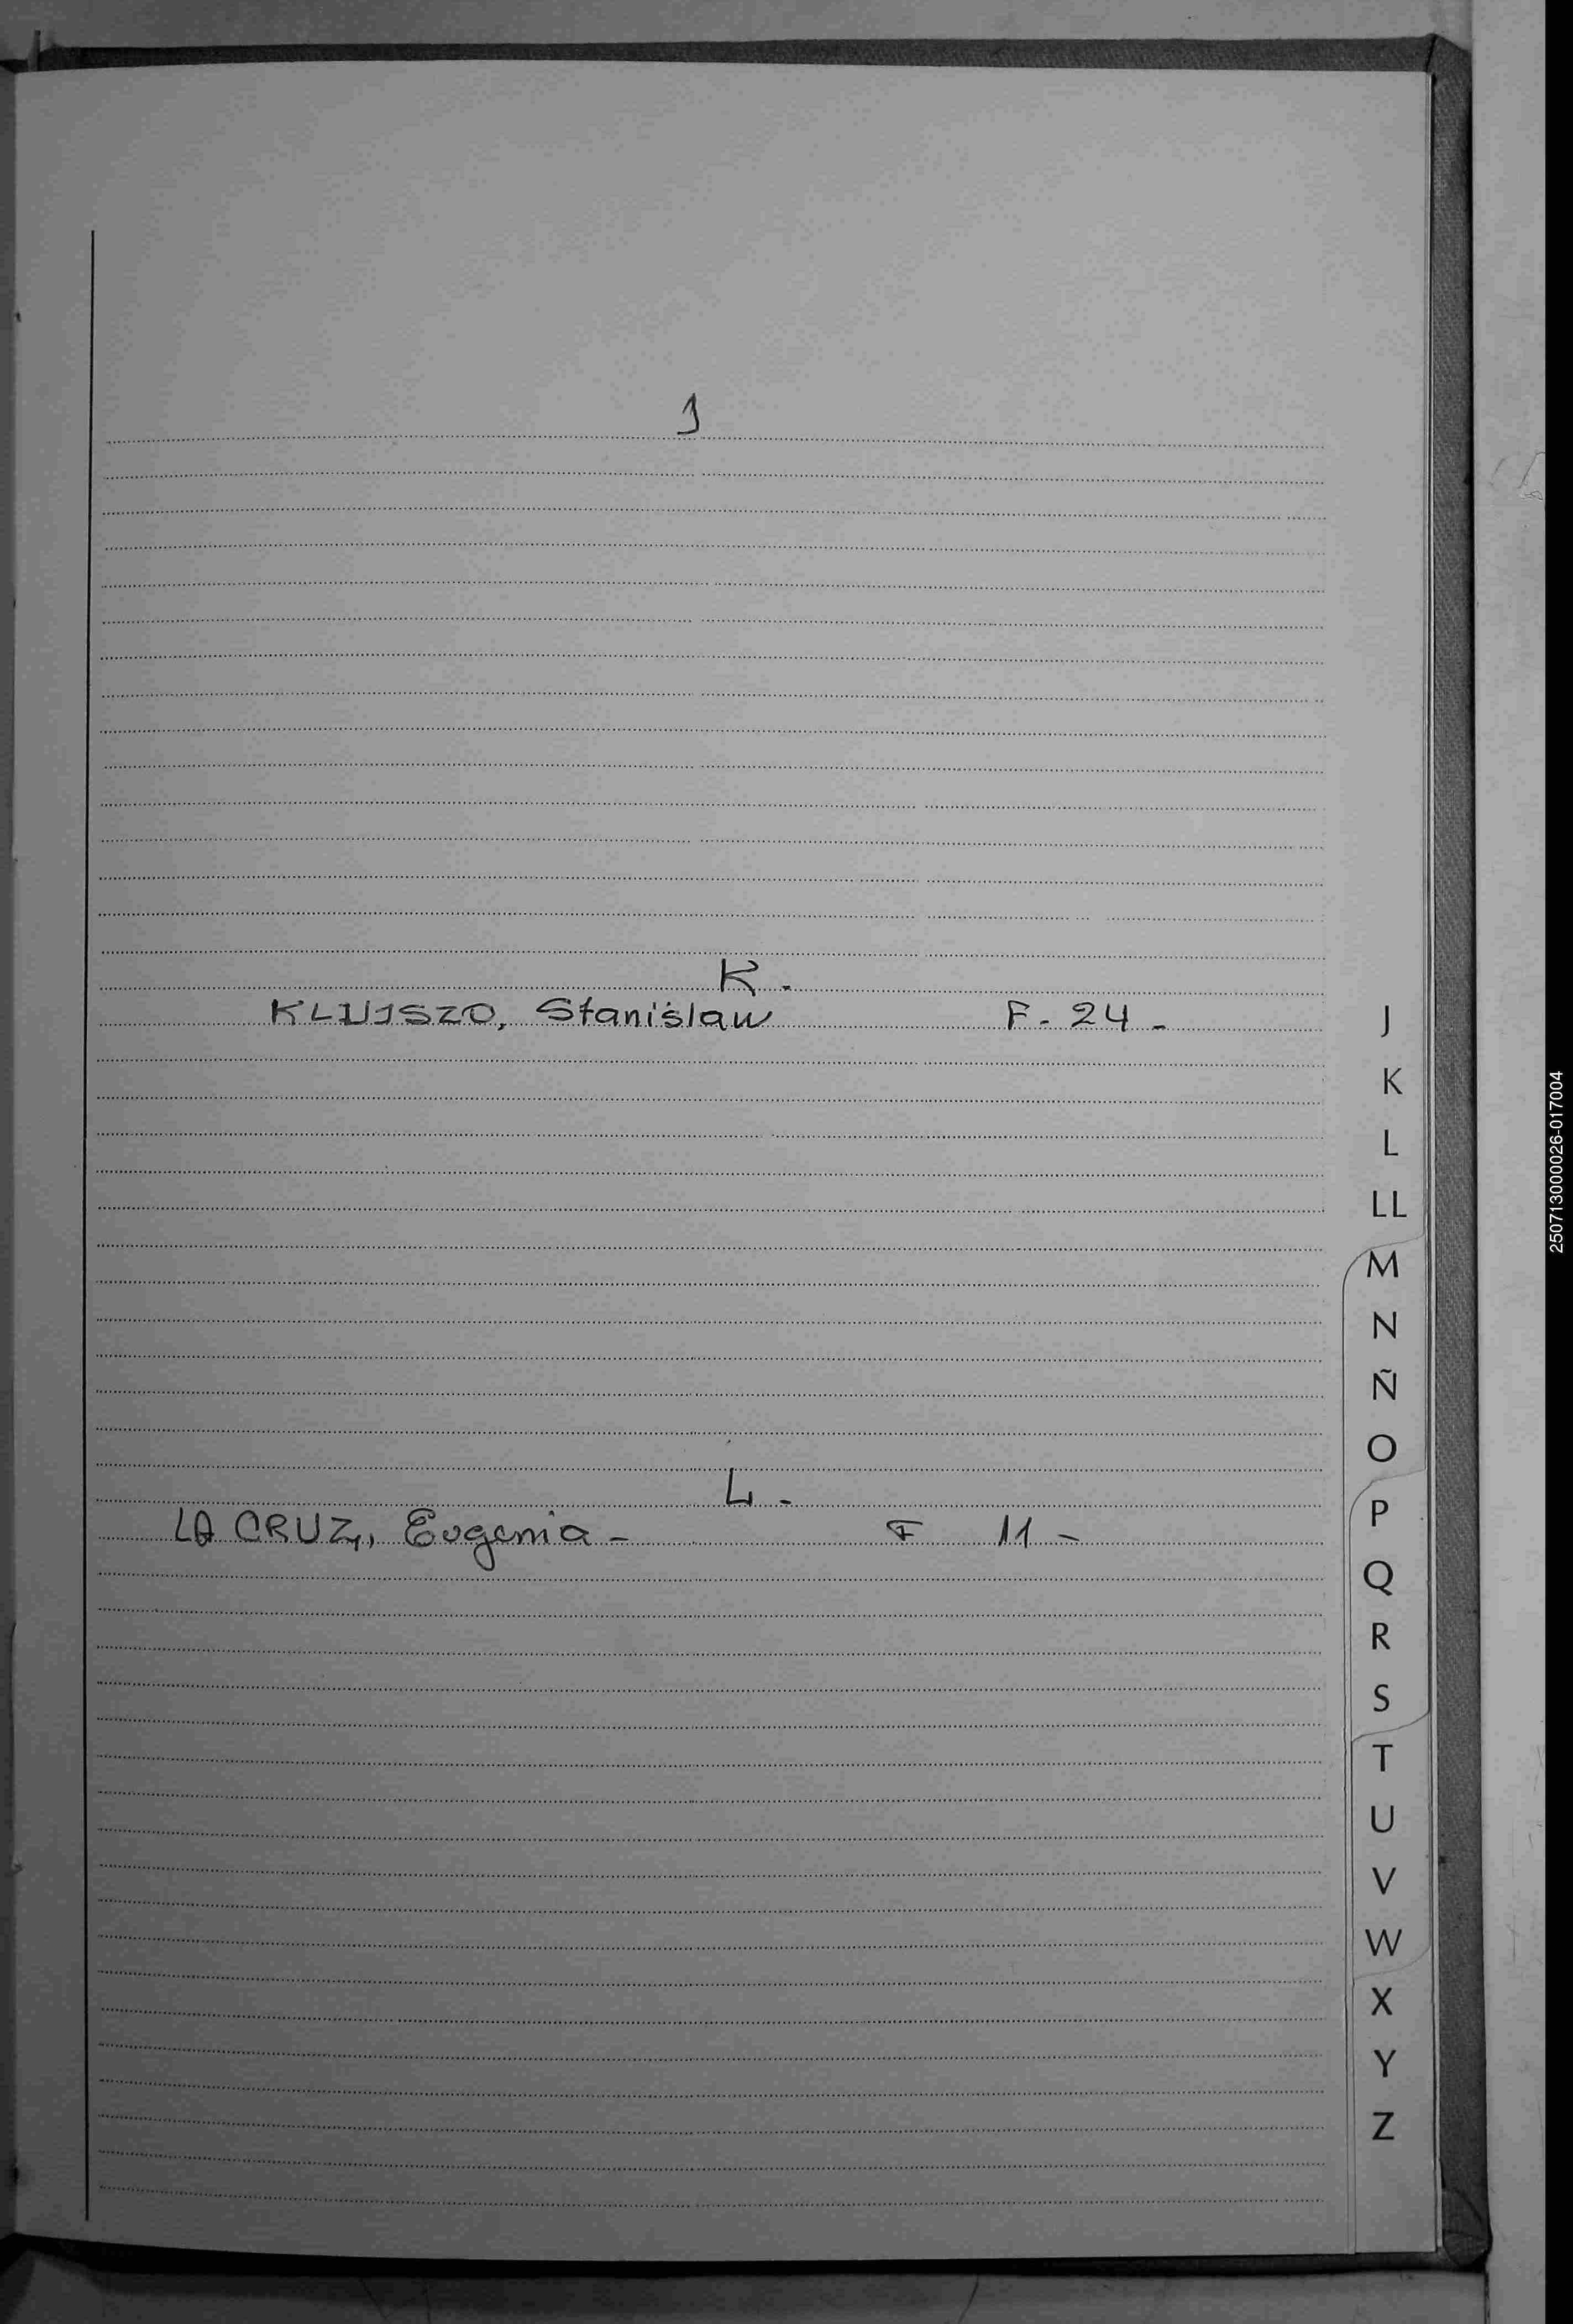 J
K.
Stanislaw F. 24 -
L -
LA CRUZ, Eugenia - F 11 -
J
K
L
LL
M
N
Ñ
O
P
Q
R
S
T
U
V
W
X
Y
Z
250713000026-017004